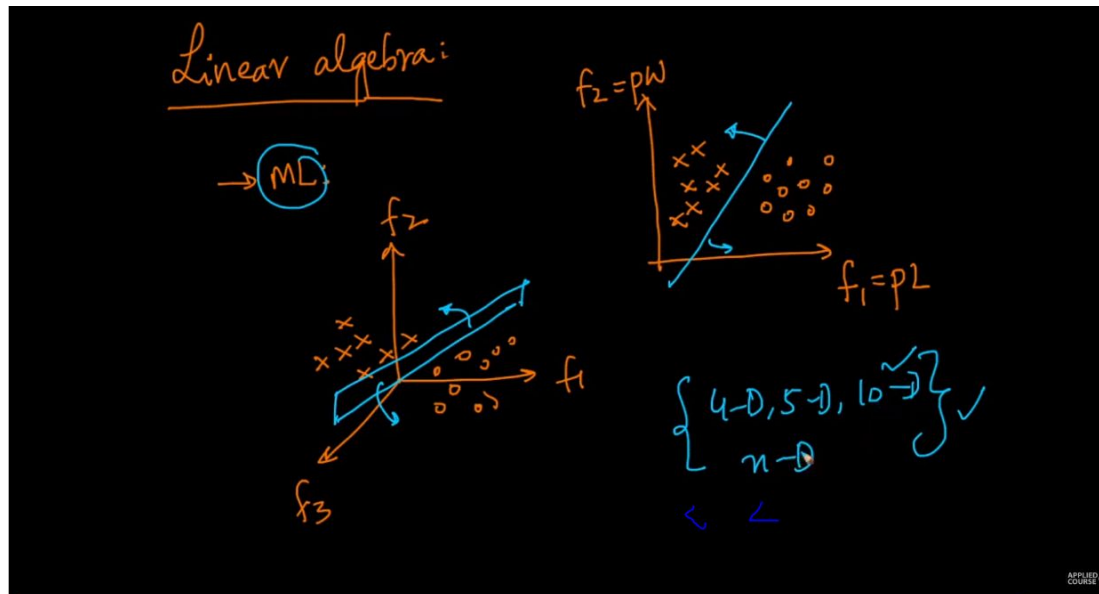 Linear algebra:
→ ML:
f2 = PW
f1 = PL
f2
f1
f3
{ 4-D, 5-D, 10-D } ✓
n-D
< <
APPLIED
COURSE